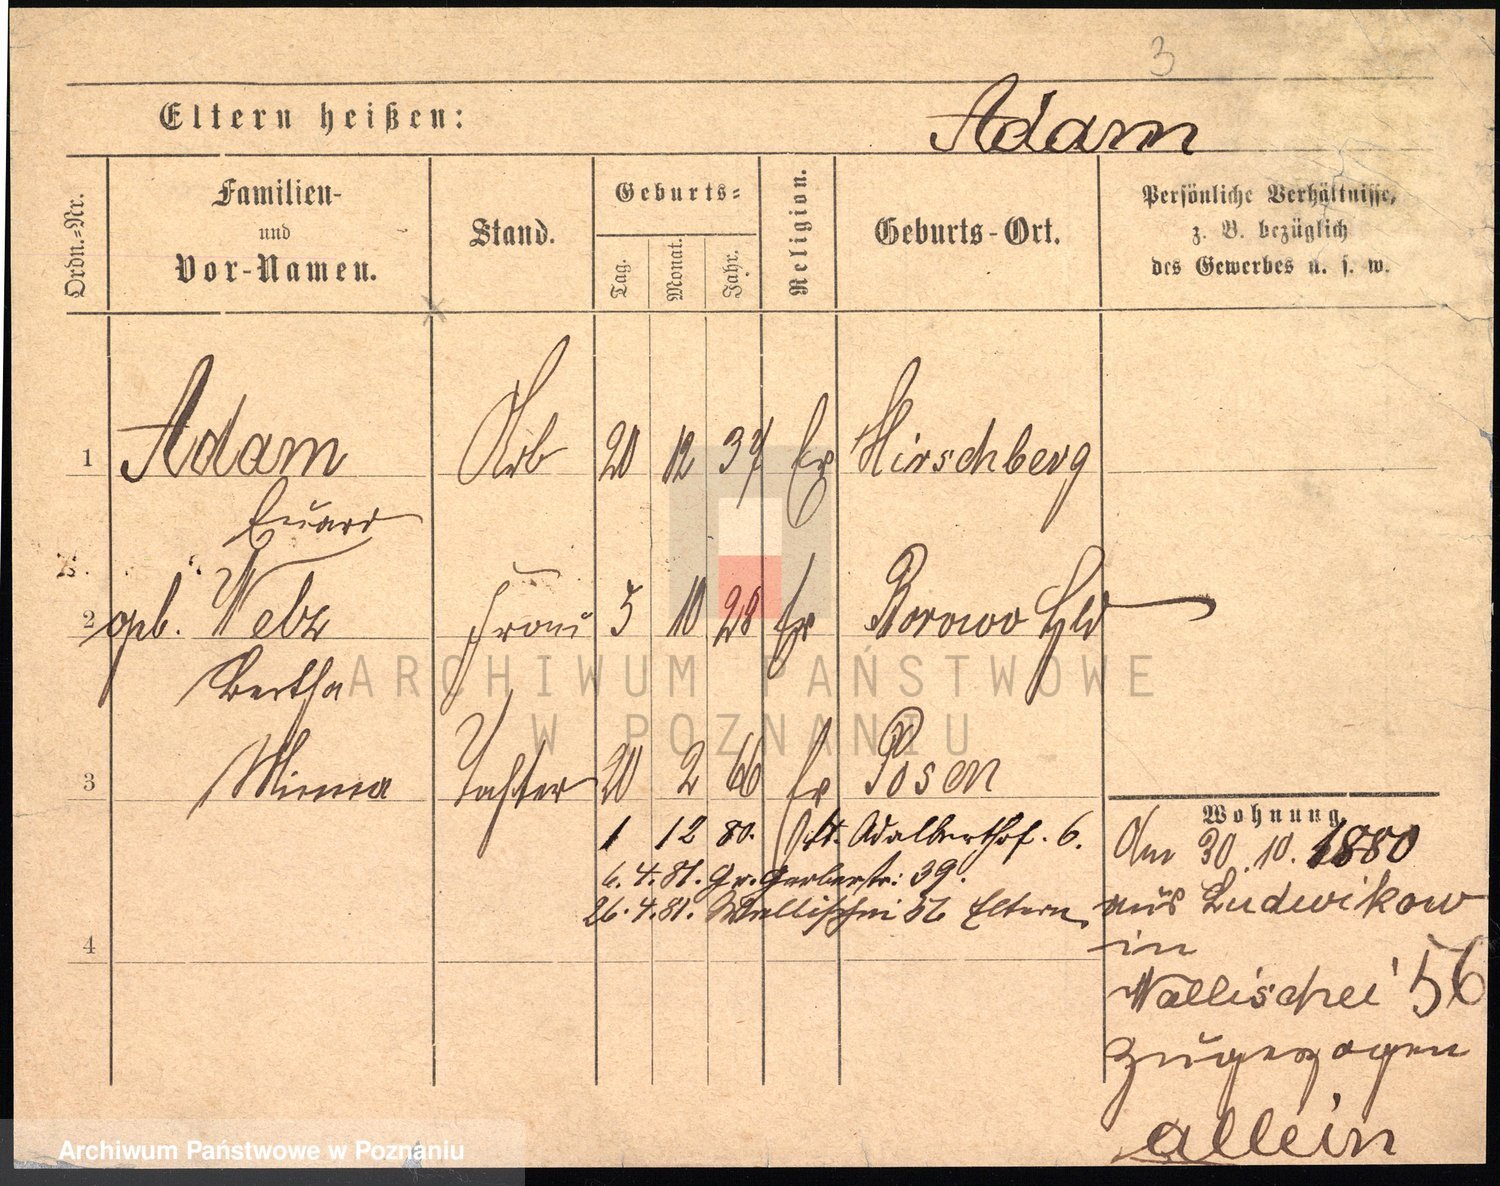 3
Eltern heißen: Adam
Ordn.-Nr.
Familien-
und
Vor-Namen.
Stand.
Geburts-
Tag.
Monat.
Jahr.
Religion.
Geburts-Ort.
Persönliche Verhältnisse,
z. B. bezüglich
des Gewerbes u. s. w.
1 Adam Arb 20 12 37 Ev Hirschberg
Eduard
2 geb. Welz Frau 5 10 28 Ev Borowo Hld
Bertha
3 Minna Tochter 20 2 66 Ev Posen
1 12 80. Adalberthof. 6.
6. 4. 81. Gr. Gerberstr: 39.
26. 4. 81. Wallischei 56 Eltern
4
Wohnung
Am 30. 10. 1880
aus Ludwikowo
in
Wallischei 56
zugezogen
allein
ARCHIWUM PAŃSTWOWE
W POZNANIU
Archiwum Państwowe w Poznaniu